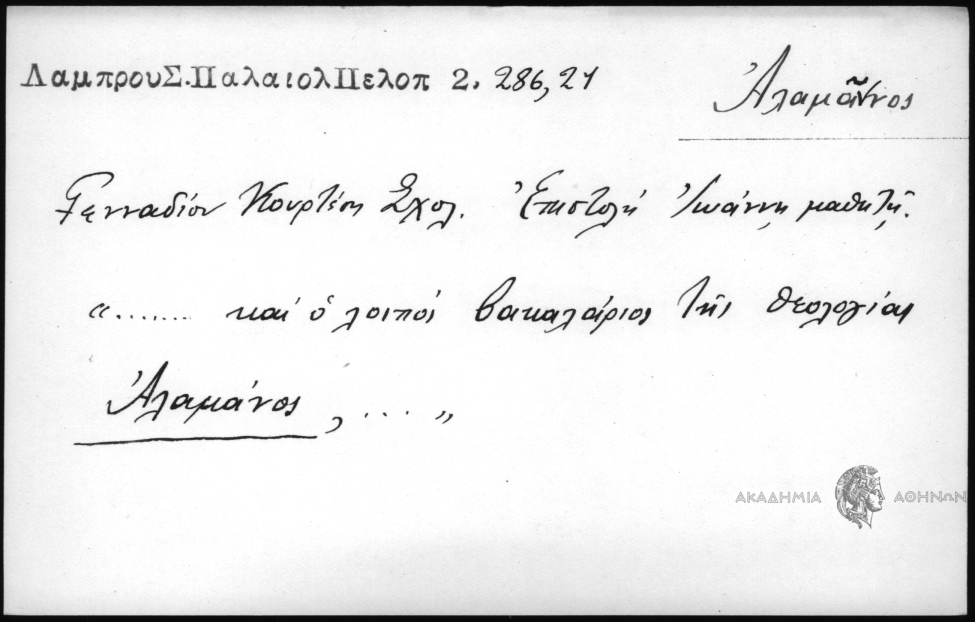 ΛαμπρουΣ.ΠαλαιολΠελοπ 2. 286,21
Ἀλαμᾶνος
Γενναδίου Κουρτέση Σχολ. Ἐπιστολὴ Ἰωάννῃ μαθητῇ.
“....... καὶ ὁ λοιπὸς βακαλάριος τῆς θεολογίας
Ἀλαμάνος, ... „
ΑΚΑΔΗΜΙΑ ΑΘΗΝΩΝ